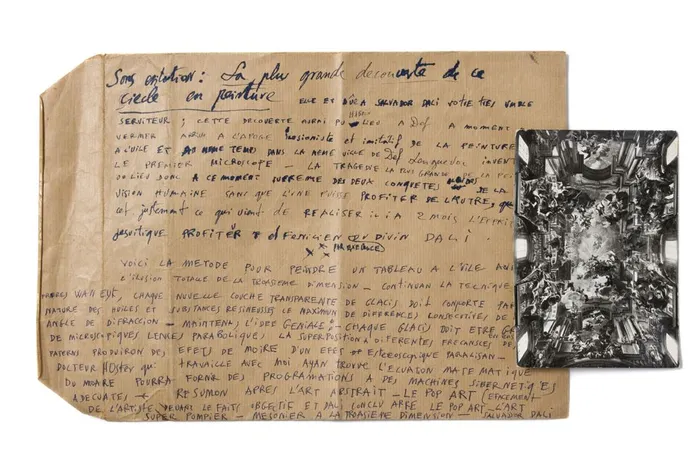 Sans exitation: La plus grande decouverte de ce
ciecle en peinture elle et dûe a Salvador Dali votre tres umble
serviteur; cette decouverte aurai pu lieu a Def a moment
Vermer a l'apoje ilusioniste et imitatif de la peinture
a l'uile et au meme temps dans la meme ville de Def inventa
le premier microscope – la tragedie la plus grande de la
do lieu donc a ce moment supreme des deux conquetes de la
vision humaine sans que l'une puise profiter de l'autres que
cet justement ce qui vient de realiser il i a 2 mois
jesuitique profiter du divin Dali.
paranoiaque
Voici la metode pour peindre un tableau a l'uile
l'ilusion totale de la troasieme dimension – continuan la tecnique
freres Wan Eyk, chaque nuvelle couche transparente de glacis doit conporte
nature des huiles et substances resineuses le maximun de diferences consecitives de
angle de difraccion – maintenen l'idee geniale: chaque glacis doit etre
de microscopiques lentes paraboliques la superposition a diferentes frecanses
paterns produiron des efets de moire d'un efet estereoscopique
docteur qui travaille avec moi ayan trouve l'ecuason matematique
du moare pourra fornir des programations a des machines sibernetiques
adecuates – resumon apres l'art abstrait – le pop art (efacement
de l'artiste devant le faits obgectif et Dali conclu apre le pop art l'art
super pompier – mesonier a la troasieme dimension – Salvador Dali